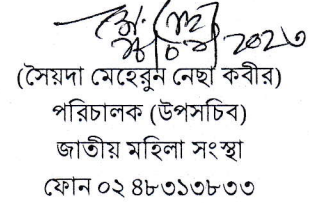 ২০২৩
(সৈয়দা মেহেরুন নেছা কবীর)
পরিচালক (উপসচিব)
জাতীয় মহিলা সংস্থা
ফোন ০২ ৪৮৩১৩৮৩৩